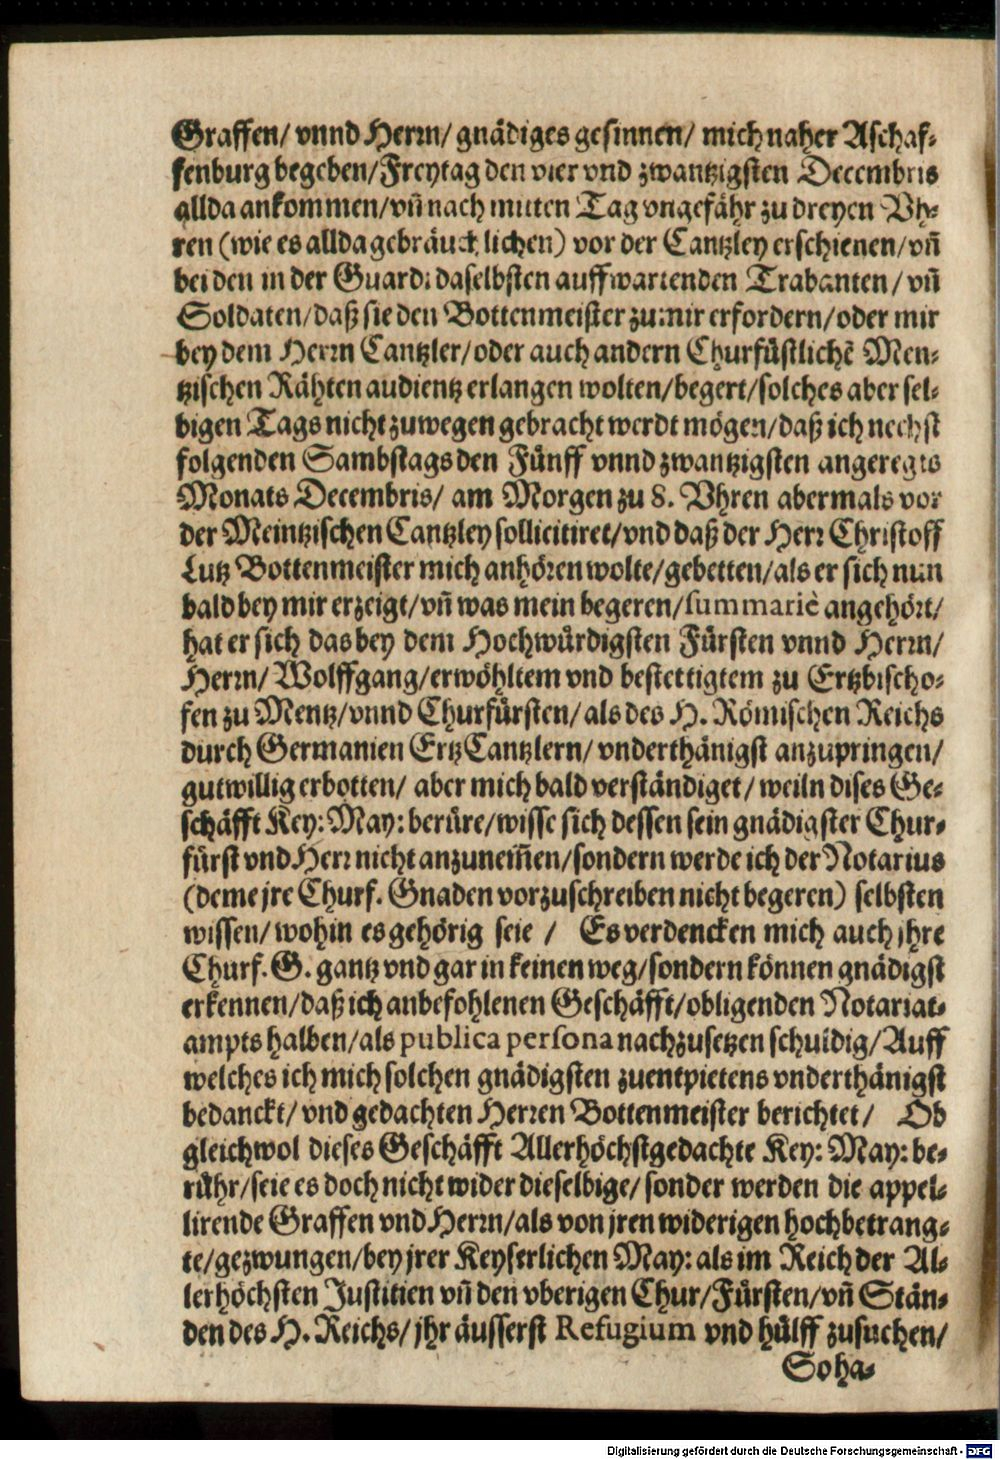 Graffen/ vnnd Herrn/ gnädiges gesinnen/ mich naher Aschaf-
fenburg begeben/ Freytag den vier vnd zwantzigsten Decembris
allda ankommen/ vñ nach mitten Tag vngefähr zu dreyen Vh-
ren (wie es allda gebräuchlichen) vor der Cantzley erschienen/ vñ
bei den in der Guardi daselbsten auffwartenden Trabanten/ vñ
Soldaten/ daß sie den Bottenmeister zu mir erfordern/ oder mir
bey dem Herrn Cantzler/ oder auch andern Churfüstlichẽ Men-
tzischen Rähten audientz erlangen wolten/ begert/ solches aber sel-
bigen Tags nicht zuwegen gebracht werdt mögen/ daß ich nechst
folgenden Sambstags den Fünff vnnd zwantzigsten angeregts
Monats Decembris/ am Morgen zu 8. Vhren abermals vor
der Meintzischen Cantzley sollicitiret/ vnd daß der Herr Christoff
Lutz Bottenmeister mich anhören wolte/ gebetten/ als er sich nun
bald bey mir erzeigt/ vñ was mein begeren/ summariè angehört/
hat er sich das bey dem Hochwürdigsten Fürsten vnnd Herrn/
Herrn/ Wolffgang/ erwöhltem vnd bestettigtem zu Ertzbischo-
fen zu Mentz/ vnnd Churfürsten/ als des H. Römischen Reichs
durch Germanien ErtzCantzlern/ vnderthänigst anzupringen/
gutwillig erbotten/ aber mich bald verständiget/ weiln dises Ge-
schäfft Key: May: berüre/ wisse sich dessen sein gnädigster Chur-
fürst vnd Herr nicht anzunem̃en/ sondern werde ich der Notarius
(deme jre Churf. Gnaden vorzuschreiben nicht begeren) selbsten
wissen/ wohin es gehörig seie / Es verdencken mich auch jhre
Churf. G. gantz vnd gar in keinen weg/ sondern können gnädigst
erkennen/ daß ich anbefohlenen Geschäfft/ obligenden Notariat-
ampts halben/ als publica persona nachzusetzen schuldig/ Auff
welches ich mich solchen gnädigsten zuentpietens vnderthänigst
bedanckt/ vnd gedachten Herren Bottenmeister berichtet/ Ob
gleichwol dieses Geschäfft Allerhöchstgedachte Key: May: be-
rühr/ seie es doch nicht wider dieselbige/ sonder werden die appel-
lirende Graffen vnd Herrn/ als von jren widerigen hochbetrang-
te/ gezwungen/ bey jrer Keyserlichen May: als im Reich der Al-
lerhöchsten Justitien vñ den vberigen Chur/ Fürsten/ vñ Stän-
den des H. Reichs/ jhr äusserst Refugium vnd hülff zusuchen/
So ha-
Digitalisierung gefördert durch die Deutsche Forschungsgemeinschaft - DFG